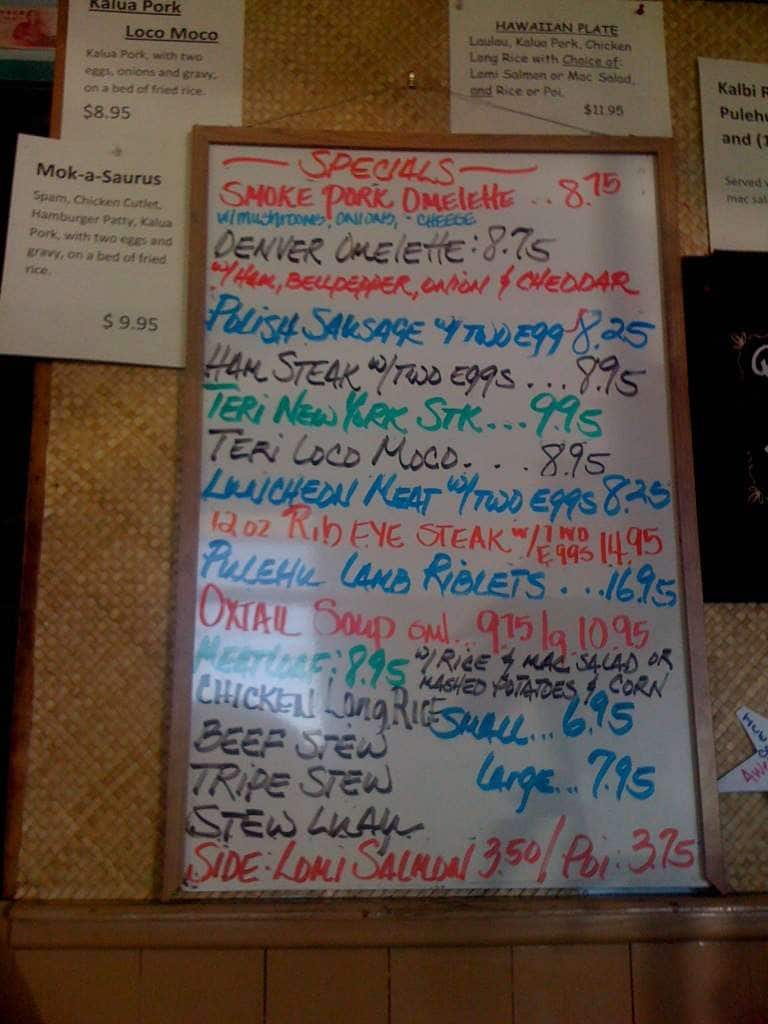 Kalua Pork
Loco Moco
Kalua Pork, with two
eggs, onions and gravy,
on a bed of fried rice.
$8.95
HAWAIIAN PLATE
Laulau, Kalua Pork, Chicken
Long Rice with Choice of:
Lomi Salmon or Mac Salad,
and Rice or Poi.
$11.95
Kalbi
Pulehu
and (1
Served
mac sal
Mok-a-Saurus
Spam, Chicken Cutlet,
Hamburger Patty, Kalua
Pork, with two eggs and
gravy, on a bed of fried
rice.
$ 9.95
SPECIALS
SMOKE PORK OMELETTE .. 8.75
W/MUSHROOMS, ONIONS, CHEESE
DENVER OMELETTE: 8.75
W/ HAM, BELLPEPPER, ONION & CHEDDAR
POLISH SAUSAGE W/ TWO EGG 8.25
HAM STEAK W/ TWO EGGS ... 8.95
TERI NEW YORK STK... 9.95
TERI LOCO MOCO. . . 8.95
LUNCHEON MEAT W/ TWO EGGS 8.25
12 oz Rib EYE STEAK W/ TWO EGGS 14.95
PULEHU LAMB RIBLETS . ...16.95
OXTAIL Soup sml... 9.75/lg 10.95
MEATLOAF: 8.95 W/ RICE & MAC SALAD OR
MASHED POTATOES & CORN
CHICKEN Long RICE
SMALL... 6.95
BEEF STEW
TRIPE STEW
Large... 7.95
STEW LUAU
SIDE: LOMI SALMON 3.50/ Poi: 3.75